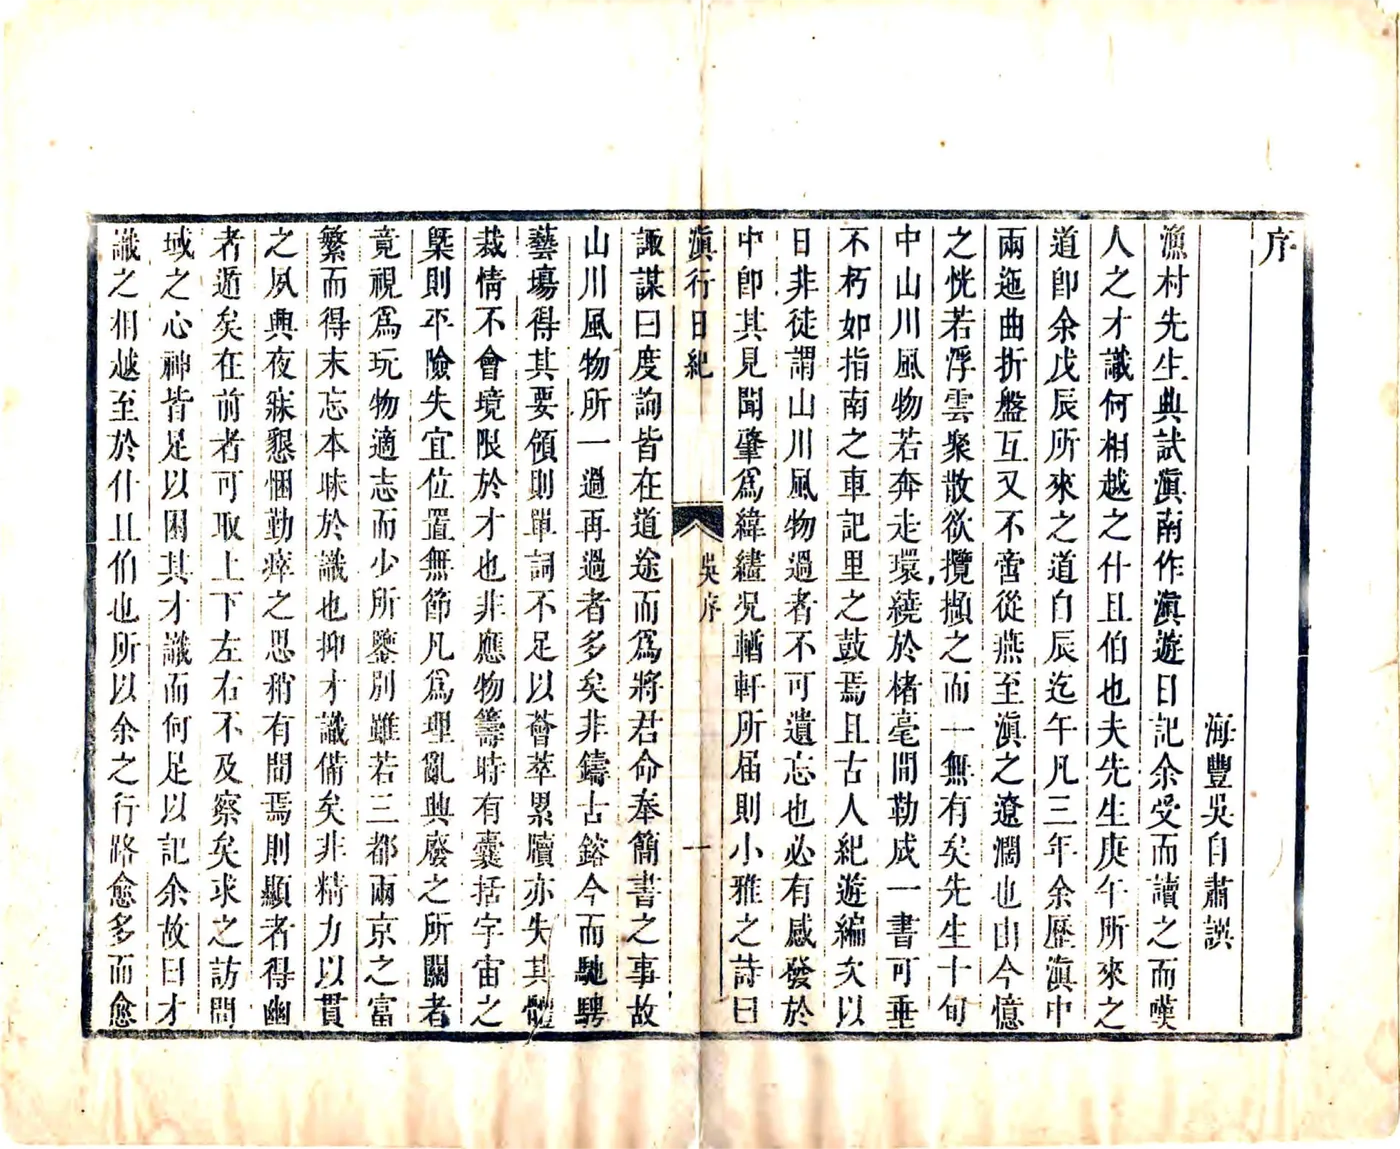 序
海豐吳自肅譔
漁村先生典試滇南作滇遊日記余受而讀之而嘆
人之才識何相越之什且伯也夫先生庚午所來之
道卽余戊辰所來之道自辰迄午凡三年余歷滇中
兩迤曲折盤互又不啻從燕至滇之遼濶也由今憶
之恍若浮雲聚散欲攬擷之而一無有矣先生十旬
中山川風物若奔走環繞於楮毫間勒成一書可垂
不朽如指南之車記里之鼓焉且古人紀遊編次以
日非徒謂山川風物過者不可遺忘也必有感發於
中卽其見聞肇爲緯繣况輶軒所届則小雅之詩曰
滇行日紀
吳序
一
諏謀曰度詢皆在道途而爲將君命奉簡書之事故
山川風物所一過再過者多矣非鑄古鎔今而馳騁
藝塲得其要領則單詞不足以薈萃累牘亦失其體
裁情不會境限於才也非應物籌時有囊括宇宙之
槩則平險失宜位置無節凡爲理亂典廢之所關者
竟視爲玩物適志而少所鑒別雖若三都兩京之富
繁而得末忘本昧於識也抑才識備矣非精力以貫
之夙興夜寐懇悃勤瘁之思稍有間焉則顯者得幽
者遁矣在前者可取上下左右不及察矣求之訪問
域之心神皆足以困其才識而何足以記余故曰才
識之相越至於什且伯也所以余之行路愈多而愈